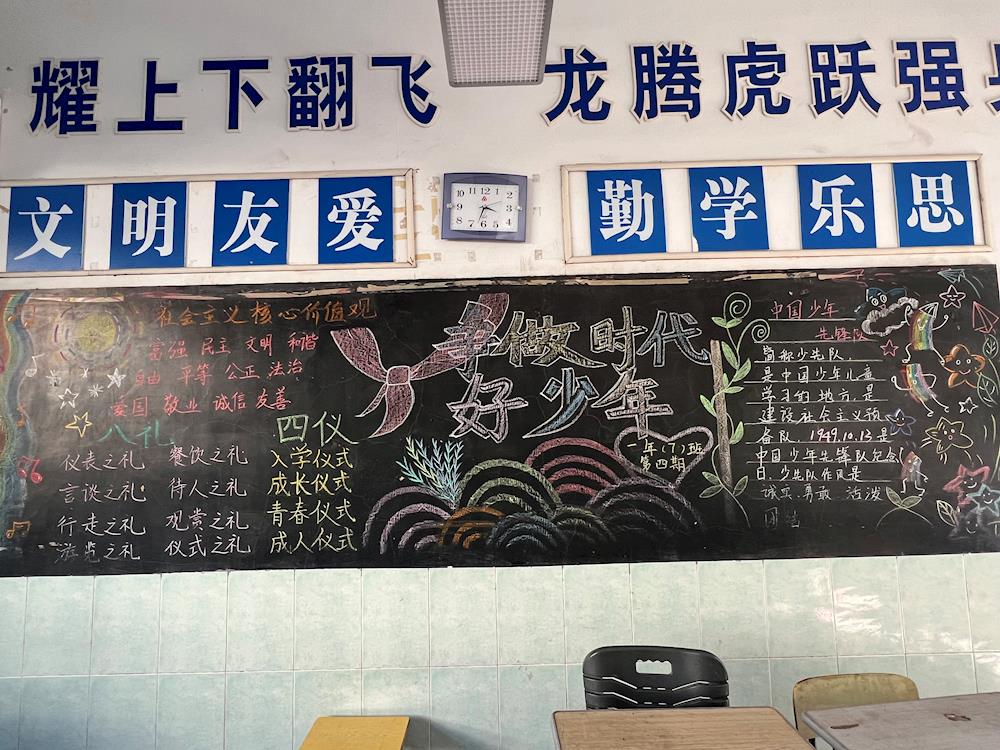 耀上下翻飞 龙腾虎跃强
文明友爱
勤学乐思
社会主义核心价值观
富强 民主 文明 和谐
自由 平等 公正 法治
爱国 敬业 诚信 友善
八礼
仪表之礼 餐饮之礼
言谈之礼 待人之礼
行走之礼 观赏之礼
游览之礼 仪式之礼
四仪
入学仪式
成长仪式
青春仪式
成人仪式
争做时代
好少年
一年(7)班
第四期
中国少年
先锋队
简称少先队,
是中国少年儿童
学习的地方,是
建设社会主义预
备队。1949.10.13是
中国少年先锋队纪念
日,少先队作风是
诚实 勇敢 活泼
团结
10 11 12 1
9 2
8 3
7 6 5 4